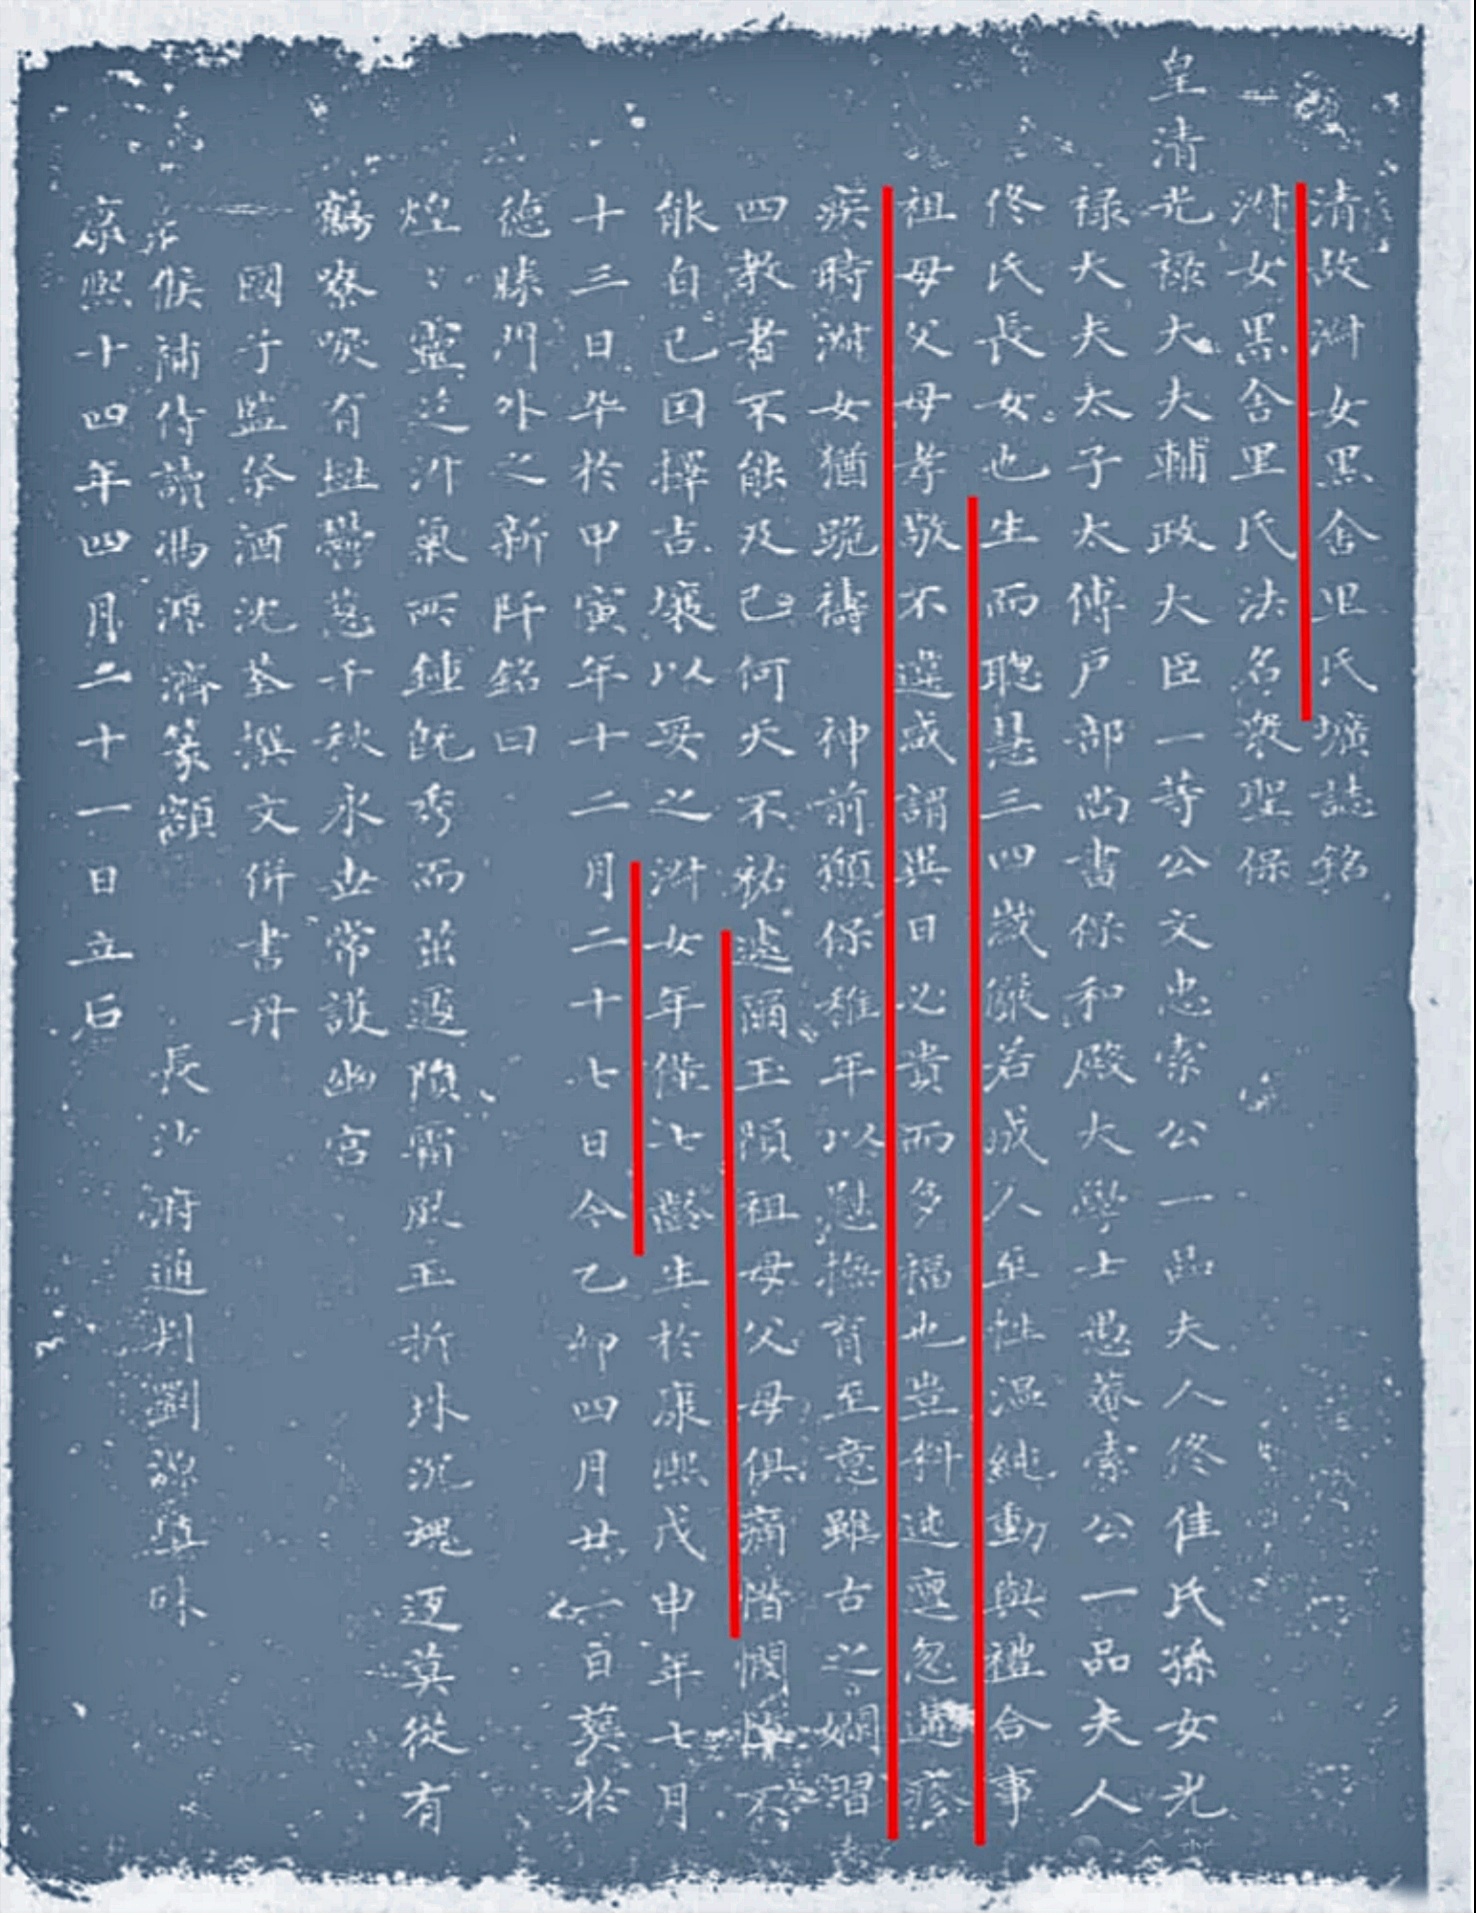 清故洲女黑舍里氏壙誌銘
洲女黑舍里氏法名眾聖保
皇清光祿大夫輔政大臣一等公文忠索公一品夫人佟佳氏孫女光
祿大夫太子太傅戶部尚書保和殿大學士愚菴索公一品夫人
佟氏長女也生而聰慧三四歲儼若成人至性溫純動與禮合事
祖母父母孝敬不違咸謂異日必貴而多福也豈料迍邅忽遘疹
疾時洲女猶跪禱 神前願保稚年以慰撫育至意雖古之嫻習
四教者不能及已何天不祐遽爾玉隕祖母父母俱痛惜憫悼不
能自已因擇吉壤以妥之洲女年僅七齡生於康熙戊申年七月
十三日卒於甲寅年十二月二十七日今乙卯四月廿一日葬於
德勝門外之新阡銘曰
煌ミ靈淑氣所鍾既秀而茁遽隕霜風玉折珠沉魂返莫從有
鶴嘹唳有壎纍蔥千秋永世常護幽宮
國子監祭酒沈荃撰文併書丹
候補侍讀馮源濟篆額 長沙府通判劉源監
康熙十四年四月二十一日立石